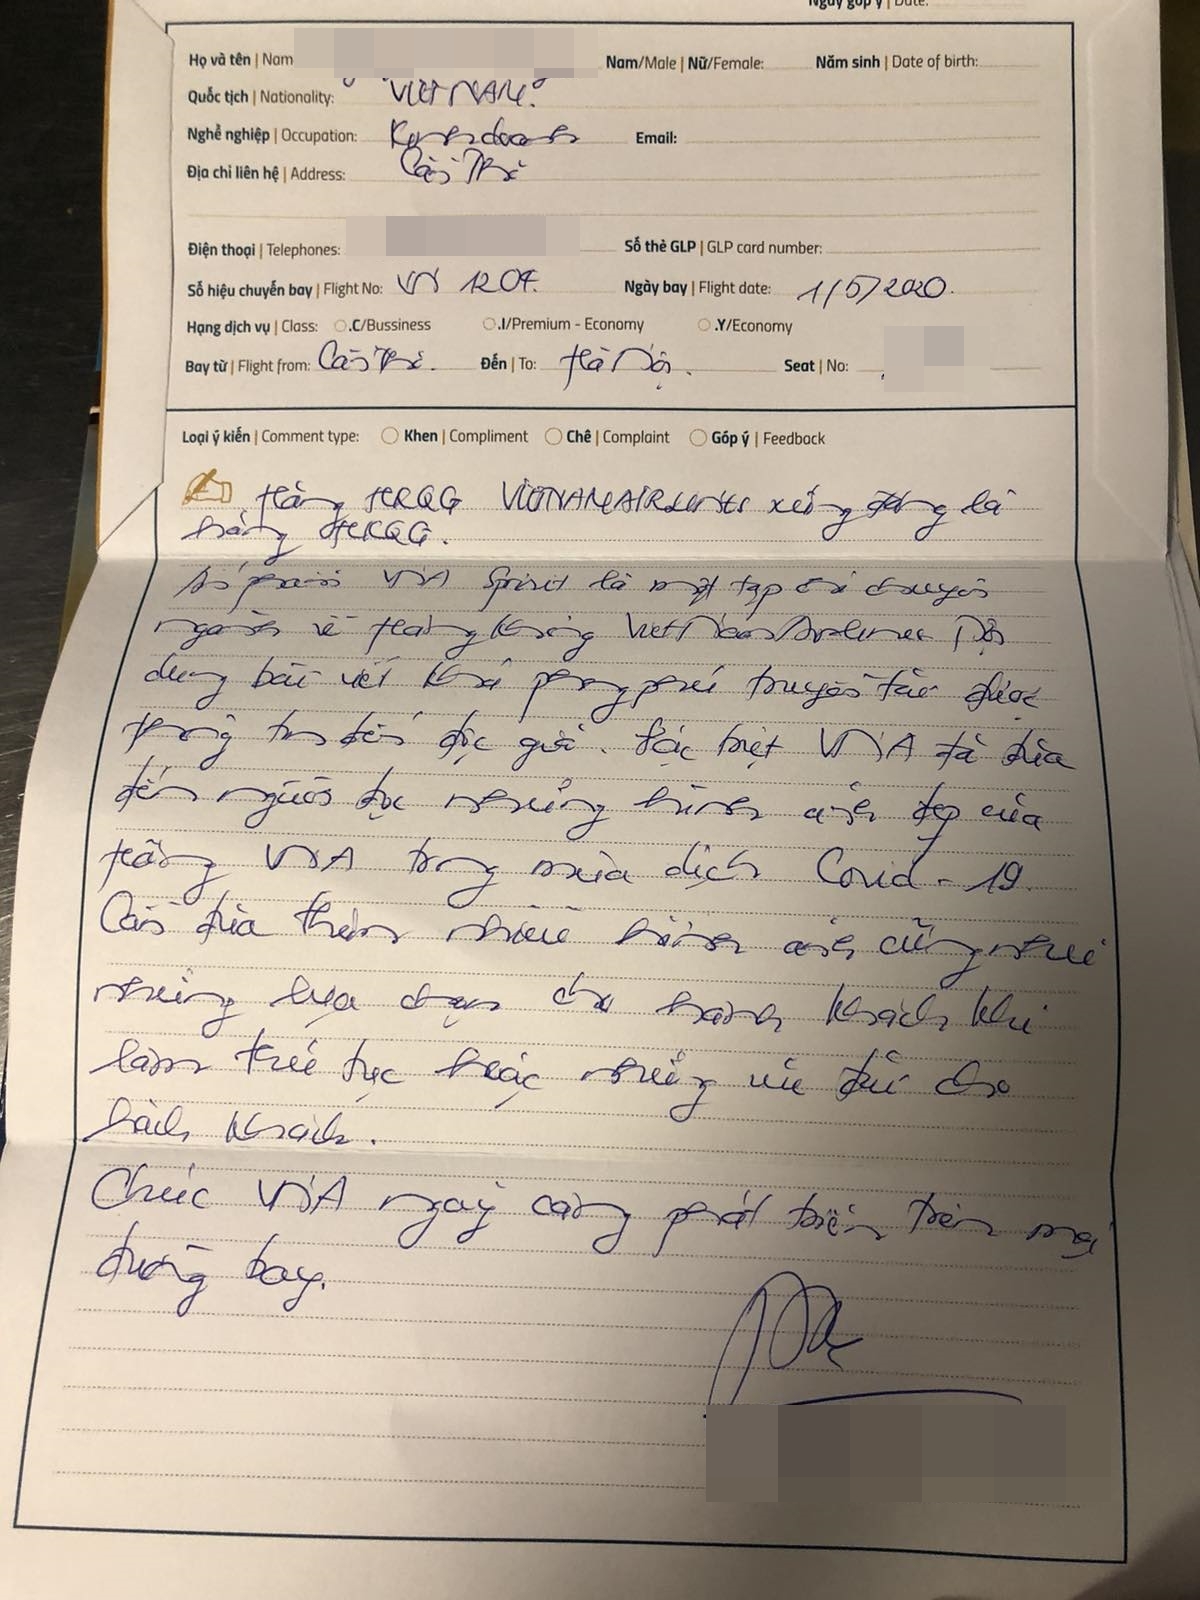 Ngày góp ý | Date:
Họ và tên | Nam
Nam/Male | Nữ/Female:
Năm sinh | Date of birth:
Quốc tịch | Nationality: VIỆT NAM.
Nghề nghiệp | Occupation: Kinh doanh
Email:
Địa chỉ liên hệ | Address: Cần Thơ
Điện thoại | Telephones:
Số thẻ GLP | GLP card number:
Số hiệu chuyến bay | Flight No: VN 1204.
Ngày bay | Flight date: 1/5/2020.
Hạng dịch vụ | Class: .C/Bussiness .I/Premium - Economy .Y/Economy
Bay từ | Flight from: Cần Thơ.
Đến | To: Hà Nội.
Seat | No:
Loại ý kiến | Comment type: Khen | Compliment Chê | Complaint Góp ý | Feedback
Hãng HKQG VIETNAM AIRLINES xứng đáng là
hãng HKQG.
VNA Spirit là một tạp chí chuyên
ngành về Hàng không VietNam Airlines Nội
dung bài viết khá phong phú truyền tải được
thông tin đến độc giả. Đặc biệt VNA đã đưa
đến người đọc những hình ảnh đẹp của
Hãng VNA trong mùa dịch Covid - 19.
Cần đưa thêm nhiều hình ảnh cũng như
những lựa chọn cho hành khách khi
làm thủ tục hoặc những ưu đãi cho
hành khách.
Chúc VNA ngày càng phát triển trên mọi
đường bay.